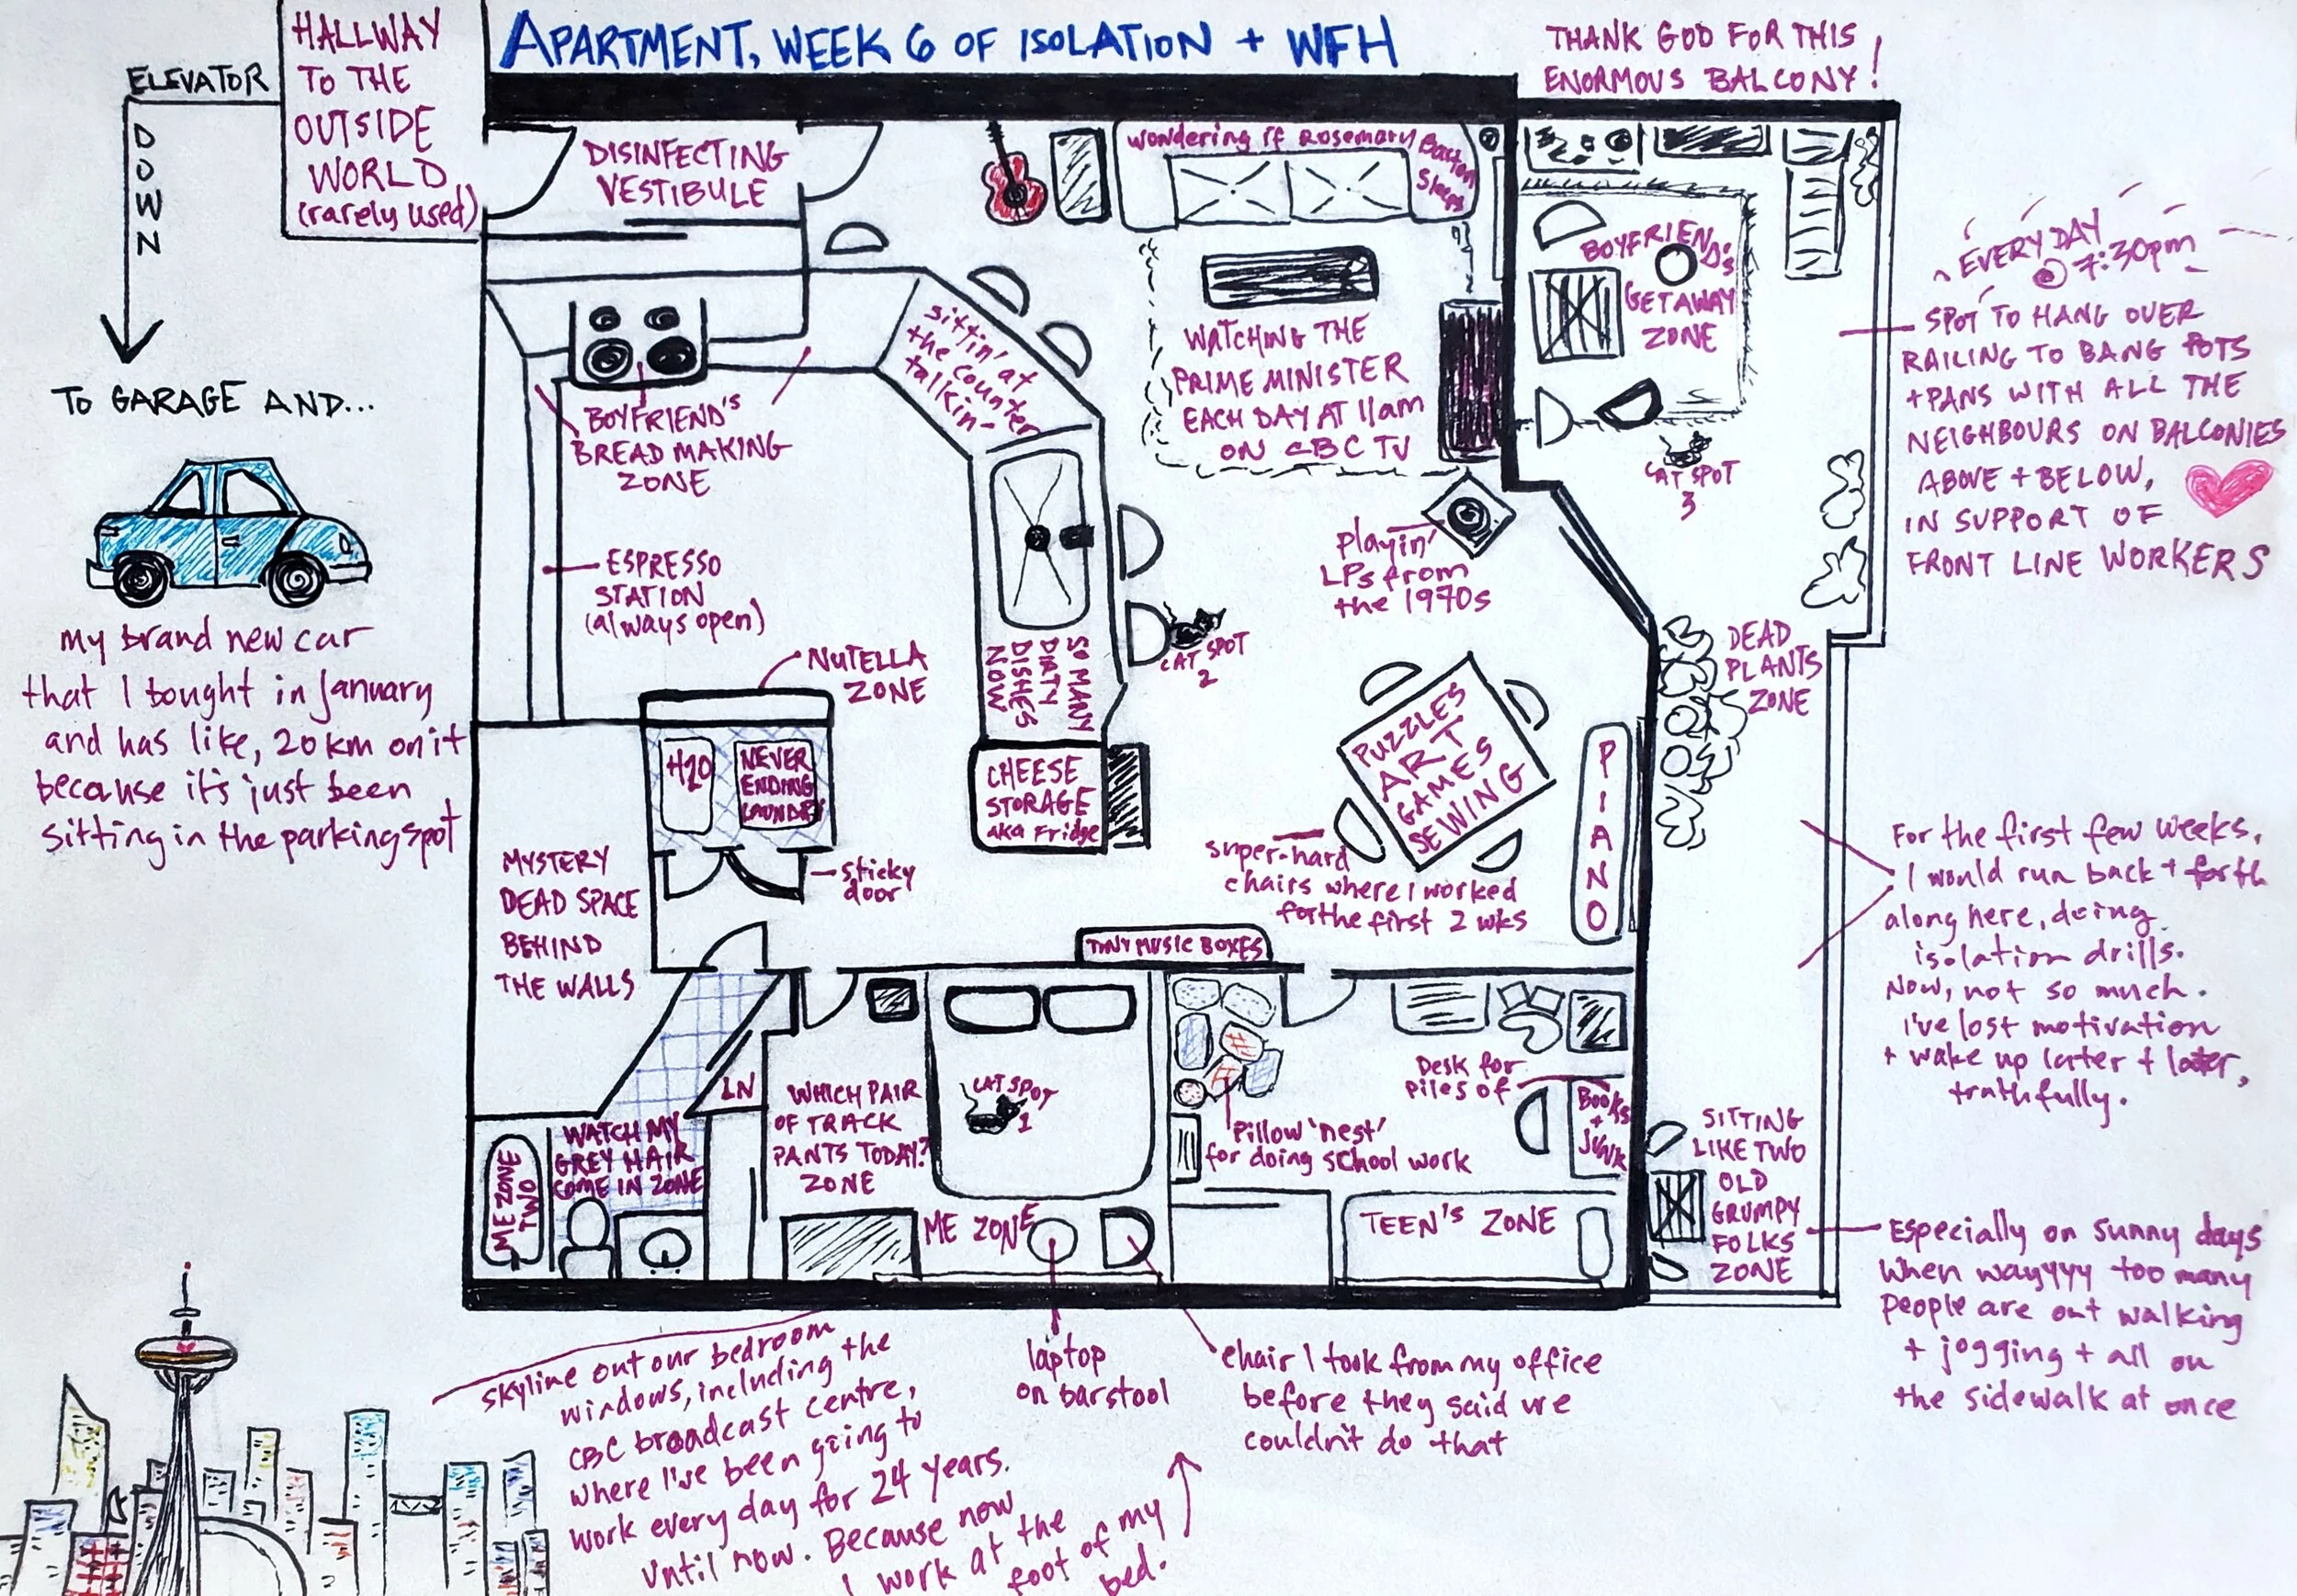 APARTMENT, WEEK 6 OF ISOLATION + WFH
HALLWAY
TO THE
OUTSIDE
WORLD
(rarely used)
ELEVATOR
DOWN
TO GARAGE AND...
my brand new car
that I bought in january
and has like, 20 km on it
because it's just been
sitting in the parking spot
THANK GOD FOR THIS
ENORMOUS BALCONY!
DISINFECTING
VESTIBULE
wondering if Rosemary
Barton
Sleeps
WATCHING THE
PRIME MINISTER
EACH DAY AT 11am
ON CBC TV
sittin' at
the counter
talkin-
BOYFRIEND'S
BREAD MAKING
ZONE
ESPRESSO
STATION
(always open)
NUTELLA
ZONE
SO MANY
DIRTY
DISHES
NOW
CHEESE
STORAGE
aka Fridge
CAT SPOT
2
playin'
LPs from
the 1970s
PUZZLES
ART
GAMES
SEWING
super-hard
chairs where I worked
for the first 2 wks
PIANO
TINY MUSIC BOXES
H2O
NEVER
ENDING
LAUNDRY
sticky
door
MYSTERY
DEAD SPACE
BEHIND
THE WALLS
LN
WATCH MY
GREY HAIR
COME IN ZONE
ME ZONE
TWO
WHICH PAIR
OF TRACK
PANTS TODAY?
ZONE
CAT SPOT
1
ME ZONE
Pillow 'nest'
for doing school work
Desk for
piles of
Books
+
Junk
TEEN'S ZONE
BOYFRIEND'S
GETAWAY
ZONE
CAT SPOT
3
DEAD
PLANTS
ZONE
SITTING
LIKE TWO
OLD
GRUMPY
FOLKS
ZONE
EVERY DAY
@ 7:30pm
SPOT TO HANG OVER
RAILING TO BANG POTS
+ PANS WITH ALL THE
NEIGHBOURS ON BALCONIES
ABOVE + BELOW,
IN SUPPORT OF
FRONT LINE WORKERS
For the first few weeks,
I would run back + forth
along here, doing
isolation drills.
Now, not so much.
I've lost motivation
+ wake up later + later,
truthfully.
Especially on sunny days
when wayyyy too many
people are out walking
+ jogging + all on
the sidewalk at once
skyline out our bedroom
windows, including the
CBC broadcast centre,
where I've been going to
work every day for 24 years.
until now. Because now
I work at the
foot of my
bed.
laptop
on barstool
chair I took from my office
before they said we
couldn't do that